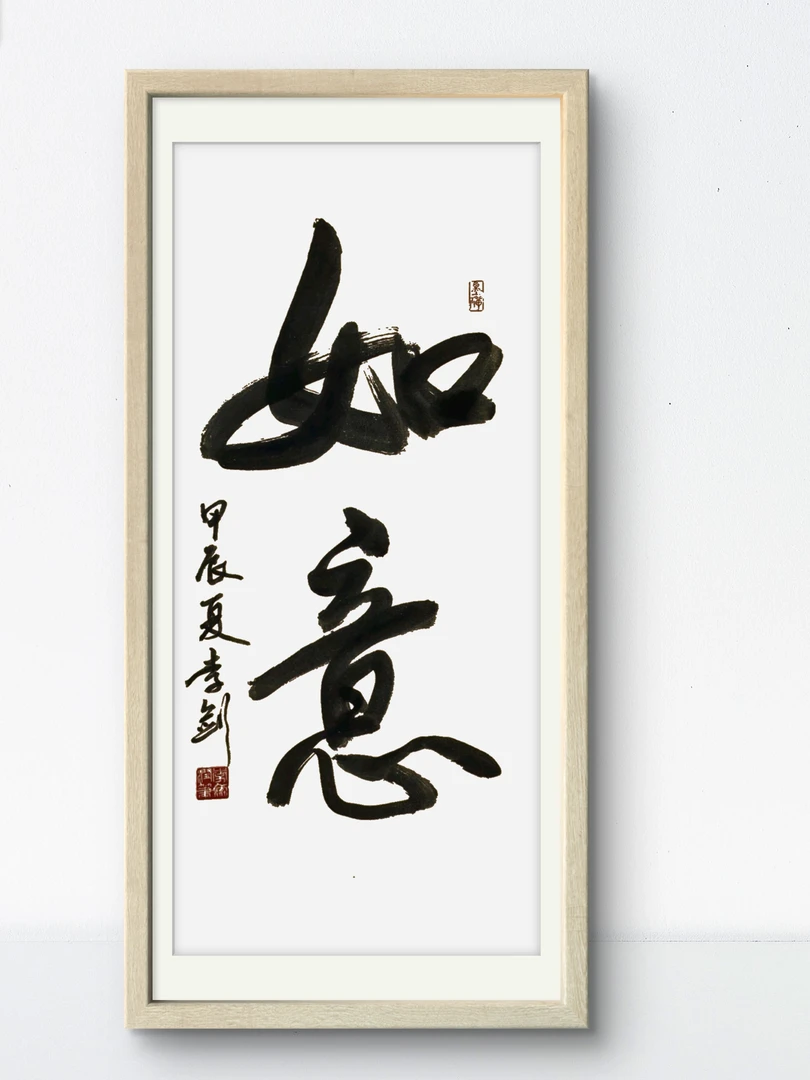 如意
甲辰夏李剑